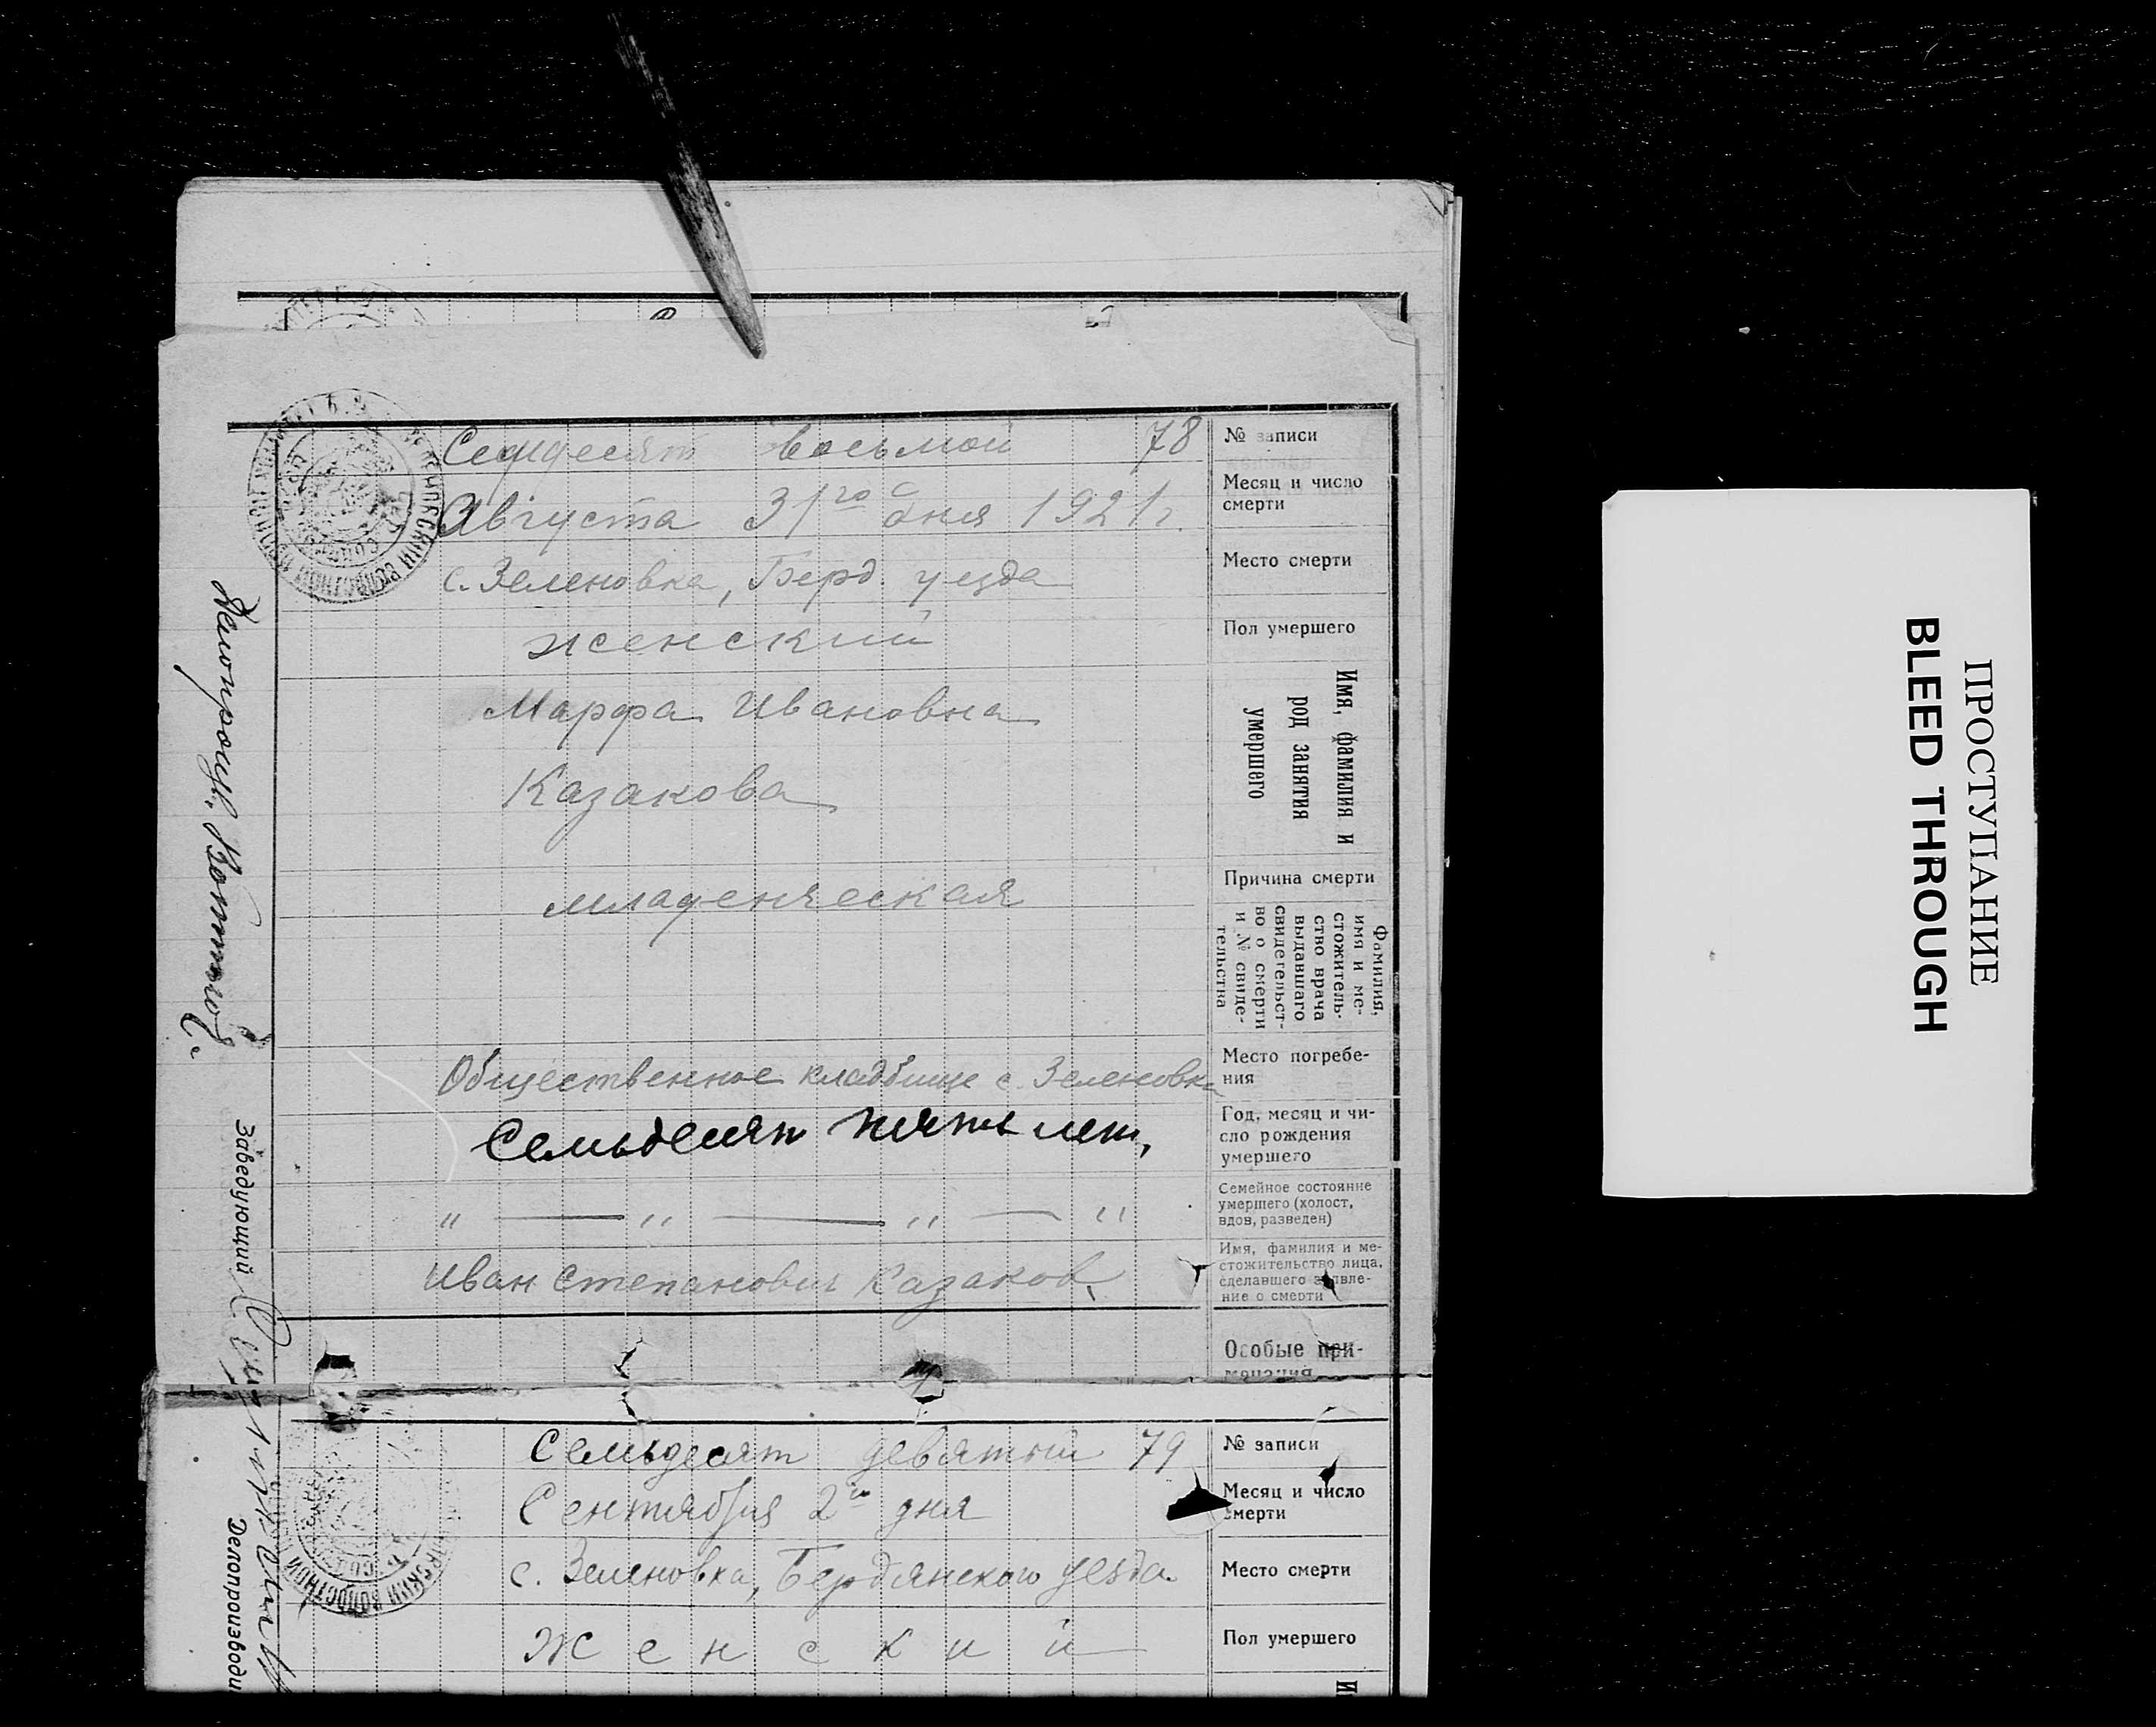 Седмдесят восьмой 78
№ записи
Августа 31го дня 1921 г.
Месяц и число
смерти
с. Зеленовка, Берд. уезда
Место смерти
женский
Пол умершего
Марфа Ивановна
Казакова
Имя, фамилия и
род занятия
умершего
младенческая
Причина смерти
Фамилия,
имя и ме-
стожитель-
ство врача
выдавшего
свидетельст-
во о смерти
и № свиде-
тельства
Общественное кладбище с. Зеленовка
Место погребе-
ния
Семьдесят пять лет,
Год, месяц и чи-
сло рождения
умершего
" — " — " — "
Семейное состояние
умершего (холост,
вдов, разведен)
Иван Степанович Казаков
Имя, фамилия и ме-
стожительство лица,
сделавшего заявле-
ние о смерти
Особые при-
мечания
Делопроизв.
Заведующий
Семьдесят девятый 79
№ записи
Сентября 2го дня
Месяц и число
смерти
с. Зеленовка, Бердянского уезда
Место смерти
Женский
Пол умершего
Делопроизводи
ПРОСТУПАНИЕ
BLEED THROUGH